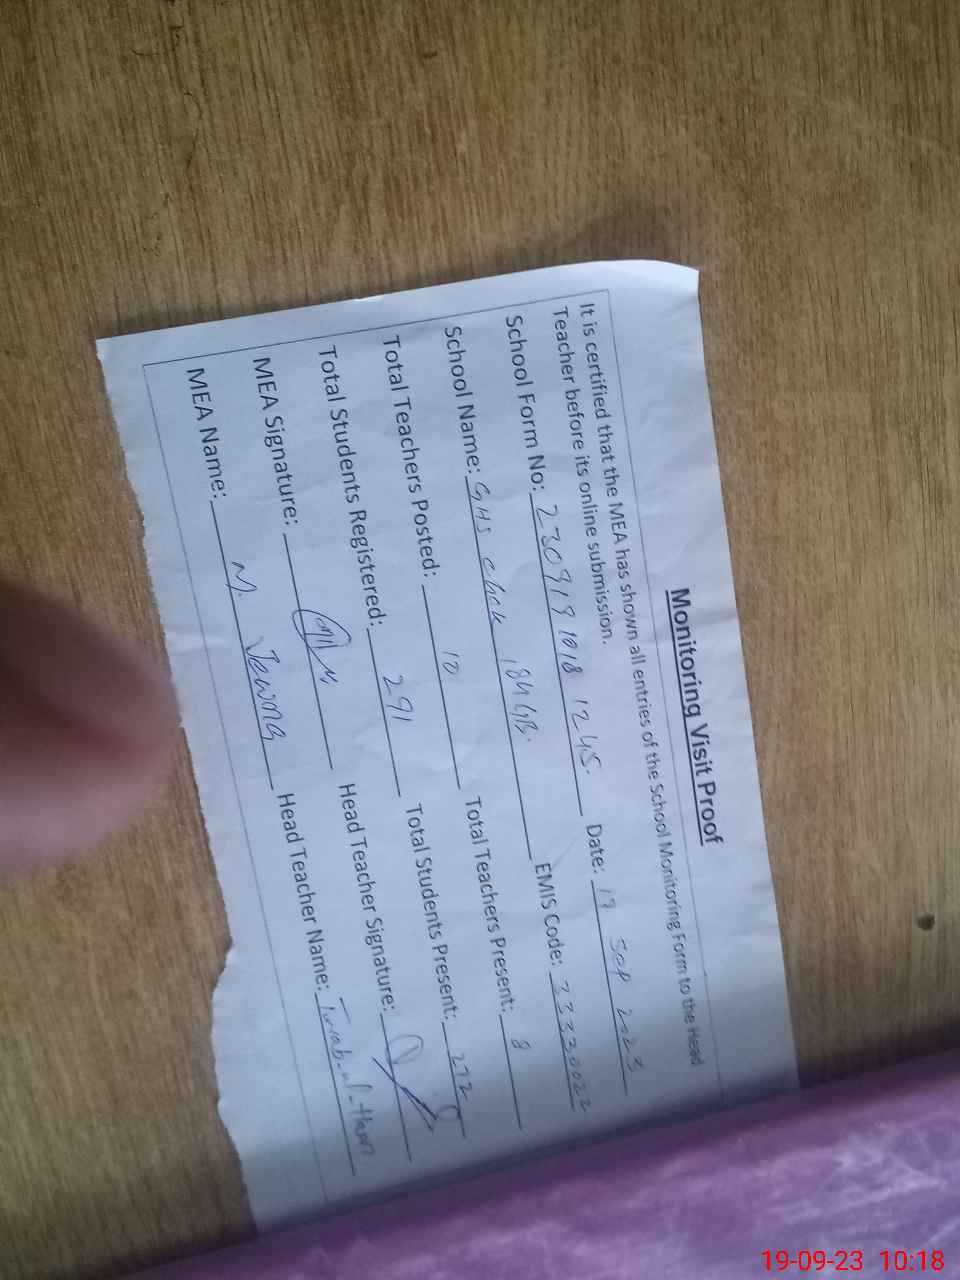 Monitoring Visit Proof
It is certified that the MEA has shown all entries of the School Monitoring Form to the Head
Teacher before its online submission.
School Form No: 230919 1018 1245. Date: 19 Sep 2023
School Name: GHS Chak 184 GB. EMIS Code: 33330022
Total Teachers Posted: 10 Total Teachers Present: 8
Total Students Registered: 291 Total Students Present: 272
MEA Signature: Head Teacher Signature:
MEA Name: M. Head Teacher Name:
19-09-23 10:18